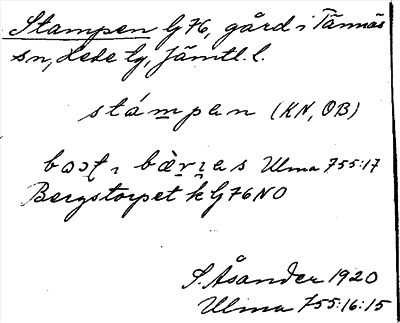 Stampen G 76, gård i Tännäs
sn, Hede tg, Jämtl. l.
stámpen (KN, ÖB)
i bæ̀rjes Ulma 755:17
Bergstorpet k G 76 NO
S. Åsander 1920
Ulma 755:16:15